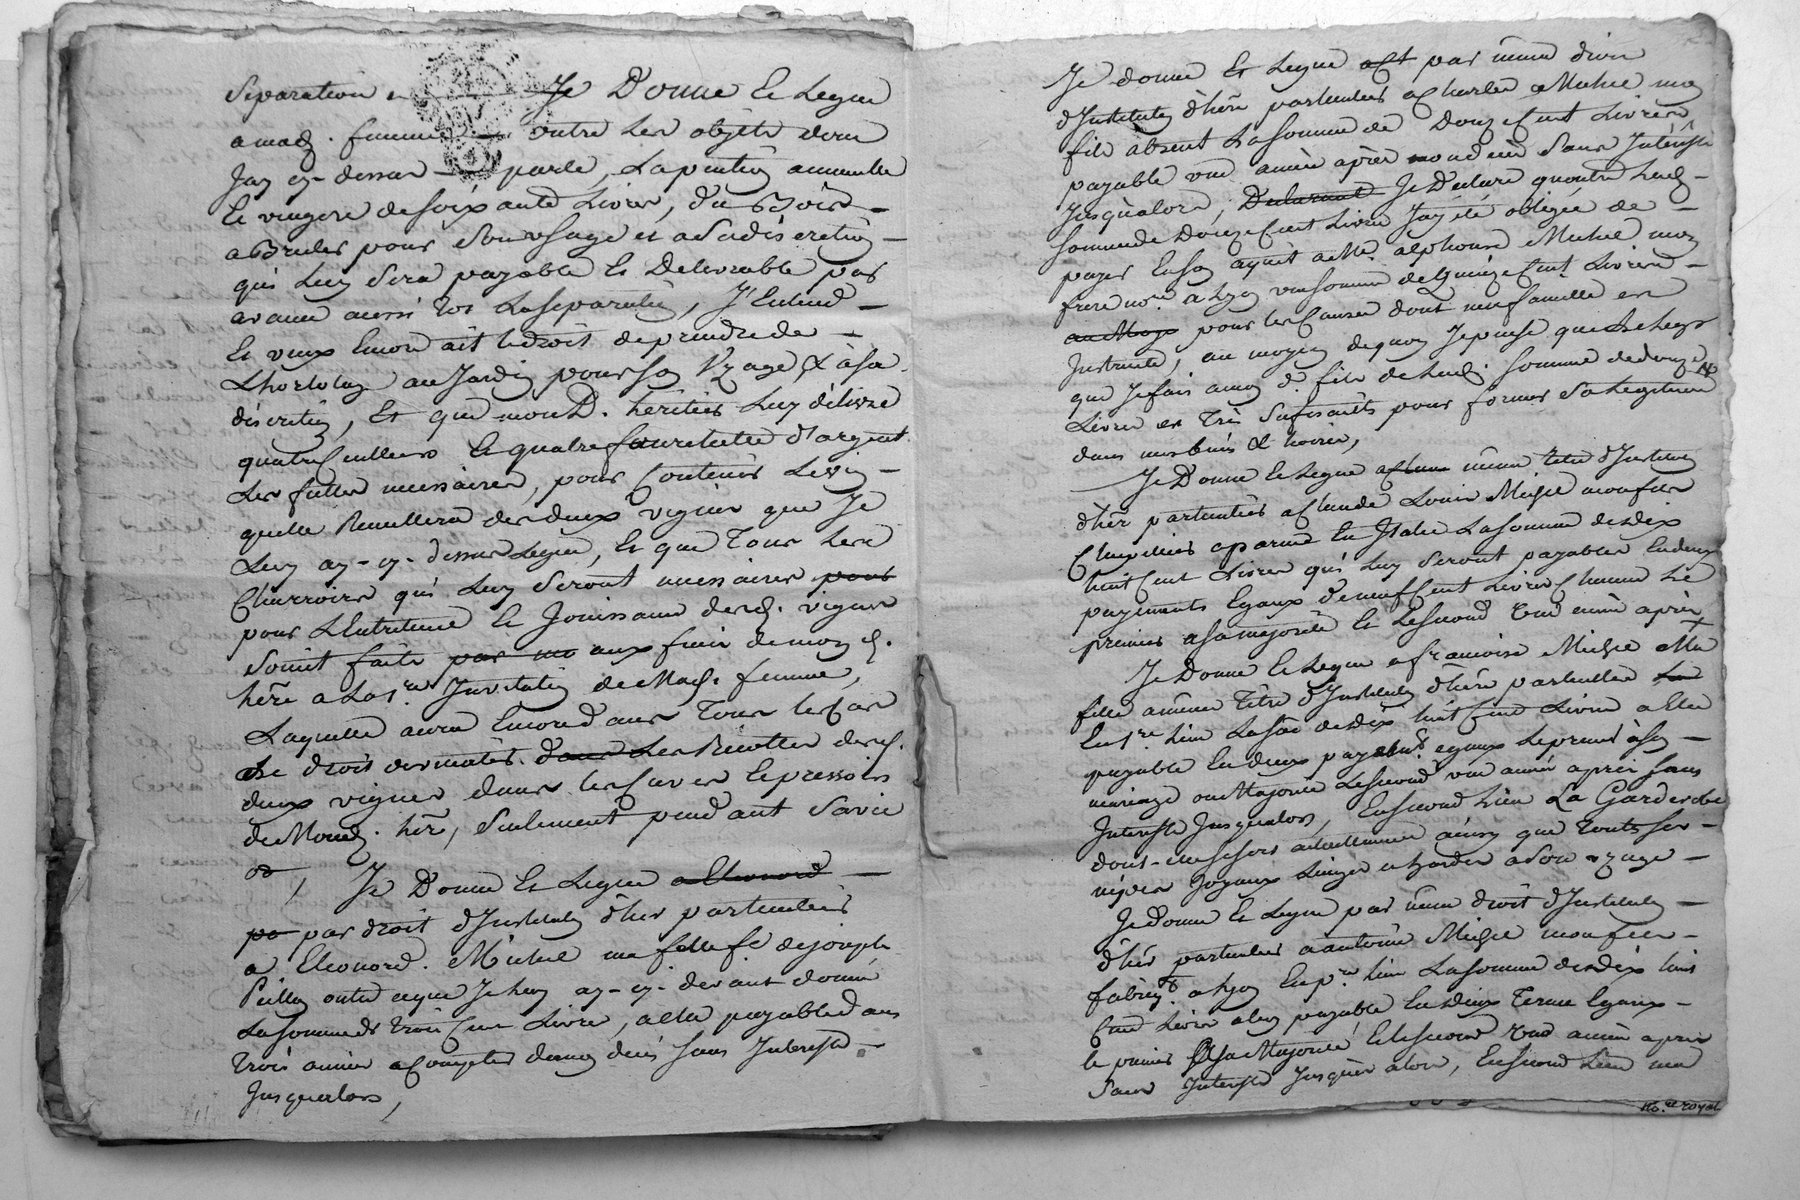 Separation Je Donne Et Legue
a mad. femme outre Les objets dont
Jay cy-dessus parlé, La pention annuelle
Et viagere de soixante Livres, du Bois
a Bruler pour Son usage et a Sa discretion
qui Luy Sera payable Et Delivrable par
avance aussi Lors La separation, J'Entend
Et veux Encore ait le droit de prendre de
L'hortolage au Jardin pour son Usage & à sa
discretion, Et que mond. heritier Luy délivre
quatre cuilleres Et quatre fourchettes d'argent
Les futtes necessaires, pour Contenir Le vin
quelle Recueillera des deux vignes que Je
Luy ay-cy-dessus Legué, Et que Tous Les
Charrois qui Luy Seront necessaires pour
pour L'Entretient Et Jouissance desd. vignes
Soint faits par mo aux frais de mon d.
here a La 1re Invitation de Mad. femme,
Laquelle aura Encore dans Tous les cas
Le droit dans Les Recoltes desd.
deux vignes dans les caves Et pressoirs
de Mond. here, Seulement pendant Sa vie
Je Donne Et Legue a Eleonord
pa par droit d'Institution d'her particulier
a Eleonord Michel ma fille fe de joseph
outre ce que Je Luy ay-cy-devant donné
La somme de trois Cent Livres, a Elle payable dans
trois années a Compter de mon décés Sans Interests
Jusqualors,
Je donne Et Legue par même droit
d'Institution d'hére particulier a Charles Michel mon
fils absent La Somme de Douze Cent Livres
payable une année après mon décès Sans Intérêsts
Jusqualors, Je Declare qu'outre Lad.
Somme de Douze Cent Livres Jay été obligée de
payer En son acquit a Mr. alphonse Michel mon
frere a Lyon une somme de Quinze Cent Livres
pour les Causes dont ma famille est
Instruite, au moyen de quoy Je pense que Le Legs
que Je fais a mon d. fils de Lad. Somme de douze Ct
Livres est Très Sufisants pour former Sa Legitime
dans mes biens & hoirie,
Je Donne Et Legue a même titre d'Institution
d'hére particulier a Claude Louis Michel mon fils
a parme En Italie La Somme de dix
huit Cent Livres qui Luy Seront payables En deux
payements Egaux de neuf Cent Livres Chacun Le
premier a Sa majorité Et Le Second une année après
Je Donne Et Legue a françoise Michel Ma
fille a même Titre d'Institution d'hére particulier
En 1re Lieu La Somme de dix huit Cent Livres a Elle
payable En deux payements egaux Le premier à son
mariage ou Majorité Le Second une année après Sans
Interests Jusqualors, En Second Lieu La Garderobe
dont elle se sert actuellement ainsy que toutes ses
nipes Joyaux Linges et hardes a Son usage
Je donne Et Legue par même droit d'Institution
d'hére particulier a antoine Michel mon fils
a Lyon En pr Lieu La Somme de dix huit
Cent Livres a Luy payable En Deux Termes Egaux
le premier a Sa Majorité Et Le Second une année après
Sans Interests Jusques alors, En Second Lieu ma